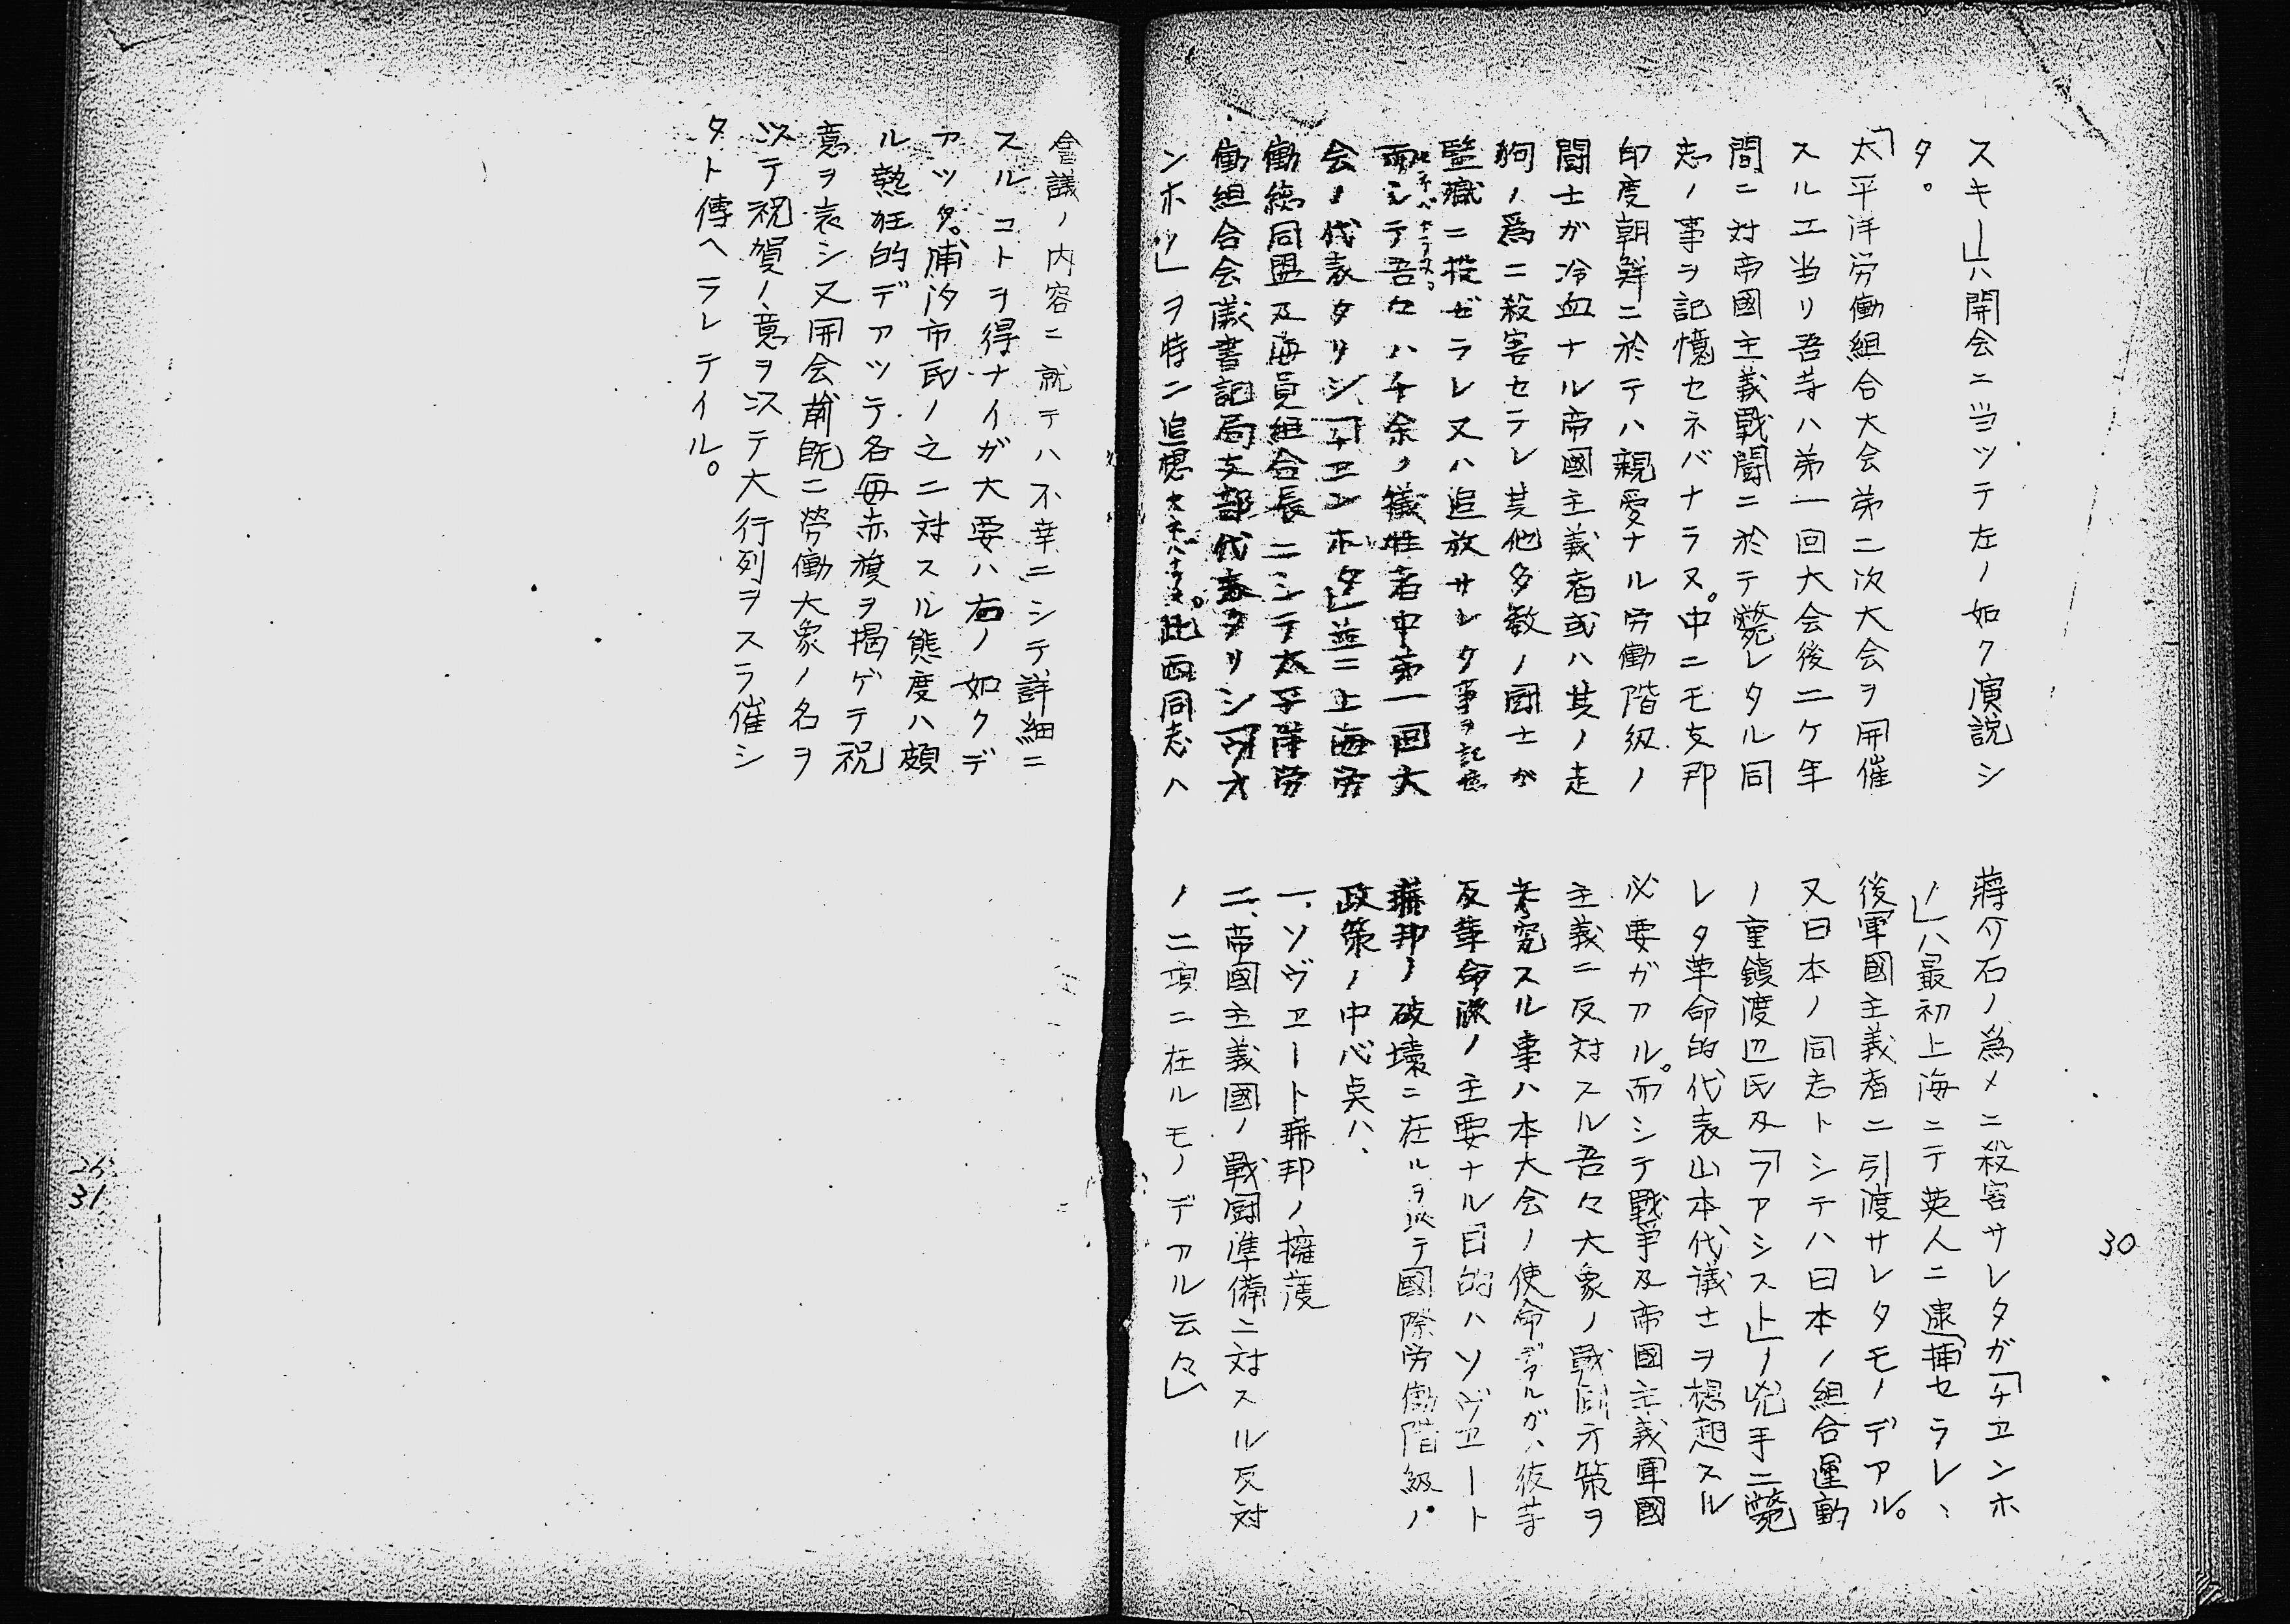 スキー」ハ開会ニ当ツテ左ノ如ク演説シ
タ。
「太平洋労働組合大会第二次大会ヲ開催
スルニ当リ吾等ハ第一回大会後二ケ年
間ニ対帝國主義戰闘ニ於テ斃レタル同
志ノ事ヲ記憶セネバナラヌ。中ニモ支那
印度朝鮮ニ於テハ親愛ナル労働階級ノ
闘士ガ冷血ナル帝國主義者或ハ其ノ走
狗ノ爲ニ殺害セラレ其他多数ノ闘士ガ
監獄ニ投ゼラレ又ハ追放サレタ事ヲ記憶
セネバナラヌ。
而シテ吾々ハ千余ノ犠牲者中第一回大
会ノ代表タリシ「チエンホタ」並ニ上海労
働総同盟及海員組合長ニシテ太平洋労
働組合会議書記局支部代表タリシ
ンホツ」ヲ特ニ追想セネバナラヌ。此両同志ハ
蔣介石ノ爲メニ殺害サレタガ「チエンホ
ノ」ハ最初上海ニテ英人ニ逮捕セラレ、
後軍國主義者ニ引渡サレタモノデアル。
又日本ノ同志トシテハ日本ノ組合運動
ノ重鎮渡辺氏及「フアシスト」ノ兇手ニ斃
レタ革命的代表山本代議士ヲ想起スル
必要ガアル。而シテ戰爭及帝國主義軍國
主義ニ反対スル吾々大衆ノ戰闘方策ヲ
考究スル事ハ本大会ノ使命デアルガ、彼等
反革命派ノ主要ナル目的ハソヴエート
聯邦ノ破壊ニ在ルヲ以テ國際労働階級ノ
政策ノ中心点ハ、
一、ソヴエート聯邦ノ擁護
二、帝國主義國ノ戰闘準備ニ対スル反対
ノ二項ニ在ルモノデアル云々」
30
會議ノ内容ニ就テハ不幸ニシテ詳細ニ
スルコトヲ得ナイガ大要ハ右ノ如クデ
アツタ。浦汐市民ノ之ニ対スル態度ハ頗
ル熱狂的デアツテ各毎赤旗ヲ揭ゲテ祝
意ヲ表シ又開会前既ニ勞働大衆ノ名ヲ
以テ祝賀ノ意ヲ以テ大行列ヲスラ催シ
タト傳ヘラレテイル。
31